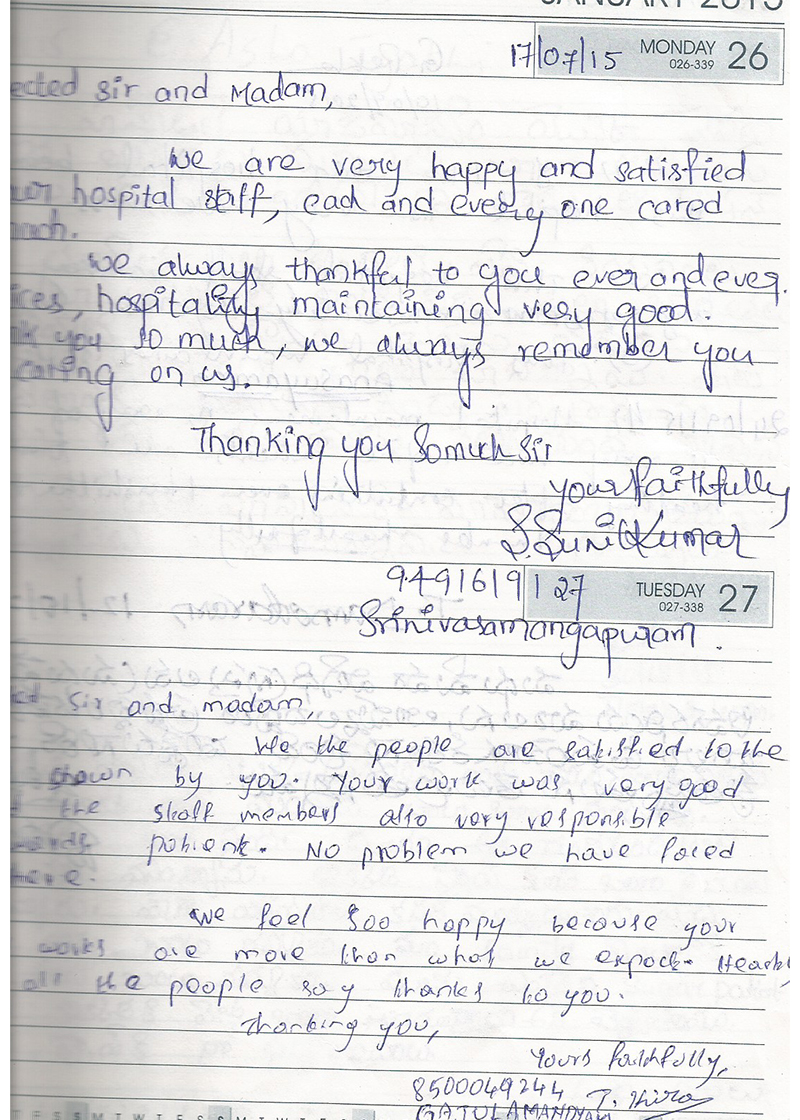 JANUARY 2015
17/07/15 MONDAY 26
026-339
ected Sir and Madam,
We are very happy and satisfied
hospital staff, each and every one cared
We always thankful to you ever and ever.
ices, hospitality maintaining very good.
k you so much, we always remember you
caring on us.
Thanking you Somuch Sir
your faithfully
S. Sunil Kumar
9491619127 TUESDAY 27
027-338
Srinivasamangapuram.
ed Sir and madam,
We the people are satisfied to the
shown by you. Your work was very good
the staff members also very responsible
patient. No problem we have faced
here.
We feel soo happy because your
works are more than what we expect. Hearty
all the people say thanks to you.
Thanking you,
Yours faithfully,
8500049244